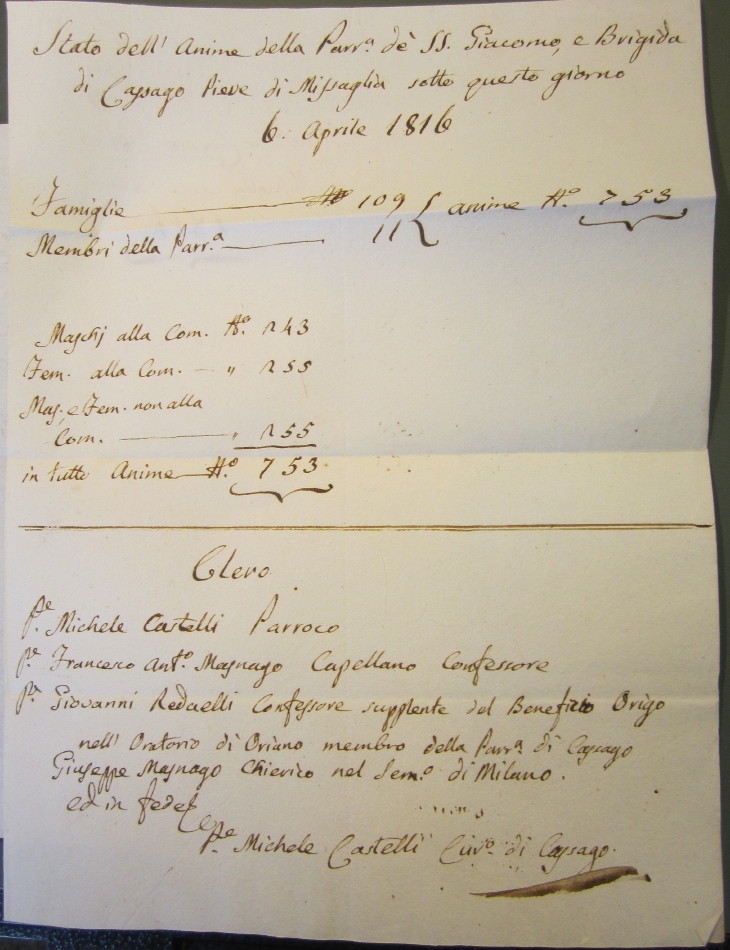 Stato dell' Anime della Parr.a de' SS. Giacomo, e Brigida
di Cassago Pieve di Missaglia sotto questo giorno
6. Aprile 1816
Famiglie N.o 109 anime N.o 753
Membri della Parr.a 11
Maschj alla Com. N.o 243
Fem. alla Com. — „ 255
Mas. e Fem. non alla
Com. — „ 255
in tutto Anime — N.o 753
Clero
P.e Michele Castelli Parroco
P.e Francesco Ant.o Magnago Capellano Confessore
P.e Giovanni Redaelli Confessore supplente del Beneficio Origo
nell' Oratorio di Oriano membro della Parr.a di Cassago
Giuseppe Magnago Chierico nel Sem.o di Milano.
ed in fede
P.e Michele Castelli Cur.o di Cassago.